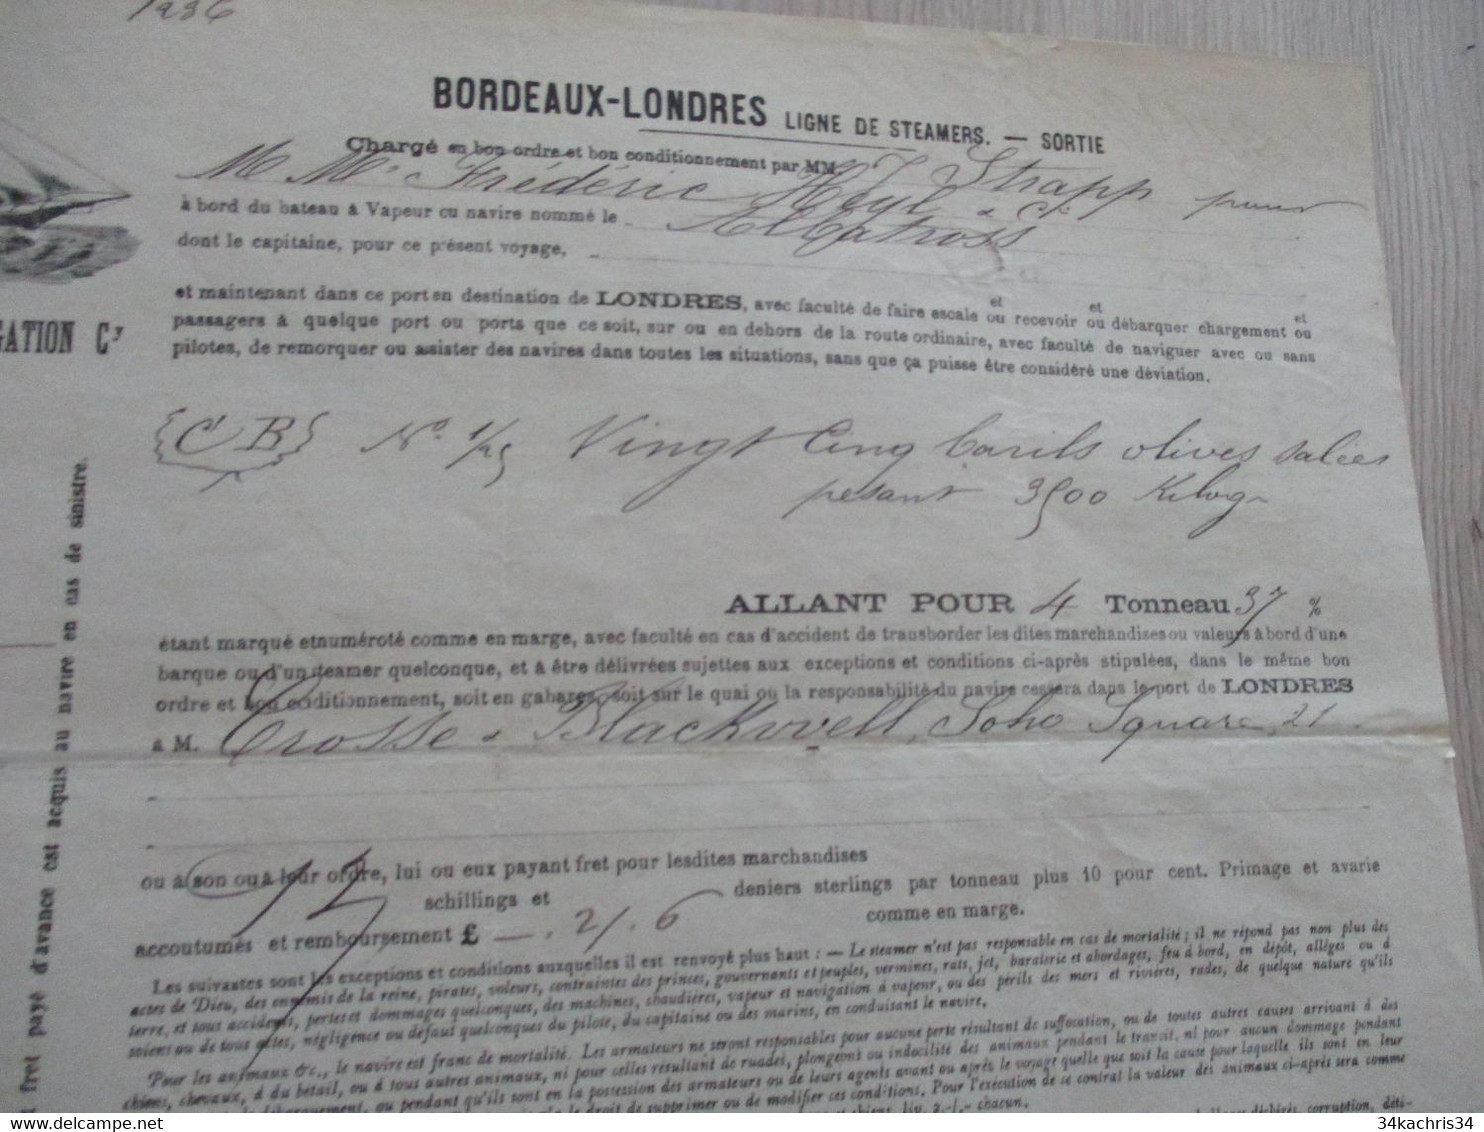 BORDEAUX-LONDRES LIGNE DE STEAMERS. — SORTIE
Chargé en bon ordre et bon conditionnement par MM. J Strapp pour
M Mrs Frédéric Heyl & Cie
à bord du bateau à Vapeur ou navire nommé le Albatross
dont le capitaine, pour ce présent voyage,
et maintenant dans ce port en destination de LONDRES, avec faculté de faire escale et ou recevoir et ou débarquer chargement et ou
passagers à quelque port ou ports que ce soit, sur ou en dehors de la route ordinaire, avec faculté de naviguer avec ou sans
pilotes, de remorquer ou assister des navires dans toutes les situations, sans que ça puisse être considéré une déviation.
GATION Cy
CB No. 1/25 Vingt Cinq barils olives salées
pesant 3500 Kilogr
ALLANT POUR 4 Tonneau 37 %
étant marqué et numéroté comme en marge, avec faculté en cas d'accident de transborder les dites marchandises ou valeurs à bord d'une
barque ou d'un steamer quelconque, et à être délivrées sujettes aux exceptions et conditions ci-après stipulées, dans le même bon
ordre et bon conditionnement, soit en gabares, soit sur le quai ou la responsabilité du navire cessera dans le port de LONDRES
à M. Crosse & Blackwell, Soho Square, 21
ou à son ou à leur ordre, lui ou eux payant fret pour lesdites marchandises
schillings et deniers sterlings par tonneau plus 10 pour cent. Primage et avarie
accoutumés et remboursement £ —. 21. 6 comme en marge.
Les suivantes sont les exceptions et conditions auxquelles il est renvoyé plus haut : — Le steamer n'est pas responsable en cas de mortalité ; il ne répond pas non plus des
actes de Dieu, des ennemis de la reine, pirates, voleurs, contraintes des princes, gouvernants et peuples, vermines, rats, jet, baraterie et abordages, feu à bord, en dépôt, allèges ou à
terre, et tous accidents, pertes et dommages quelconques, des machines, chaudières, vapeur et navigation à vapeur, ou des périls des mers et rivières, rades, de quelque nature qu'ils
soient ou de tous actes, négligence ou défaut quelconques du pilote, du capitaine ou des marins, en conduisant le navire.
Pour les animaux &c., le navire est franc de mortalité. Les armateurs ne seront responsables pour aucune perte résultant de suffocation, ou de toutes autres causes arrivant à des
chiens, chevaux, à du bétail, ou à tous autres animaux, ni pour celles résultant de ruades, plongeons ou indocilité des animaux pendant le transit, ni pour aucun dommage pendant
débarquement, ou pendant qu'ils sont en la possession des armateurs ou de leurs agents avant ou après le voyage quelle que soit la cause pour laquelle ils sont en leur
le droit de supprimer ou de modifier ces conditions. Pour l'exécution de ce contrat la valeur des animaux ci-après sera comme
chiens, liv. 2.-/.- chacun.
corruption, déti-
fret payé d'avance est acquis au navire en cas de sinistre.
34kachris34